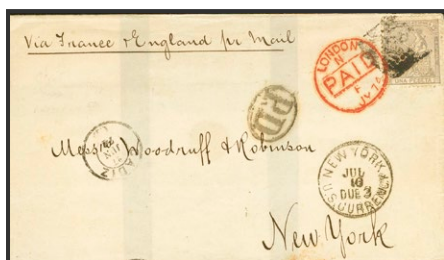 Via France & England pr Mail
LONDON
PAID
P.D.
Messrs Woodruff & Robinson
CADIZ
NEW YORK
JUL
10
DUE 3
U.S. CURRENCY
New York